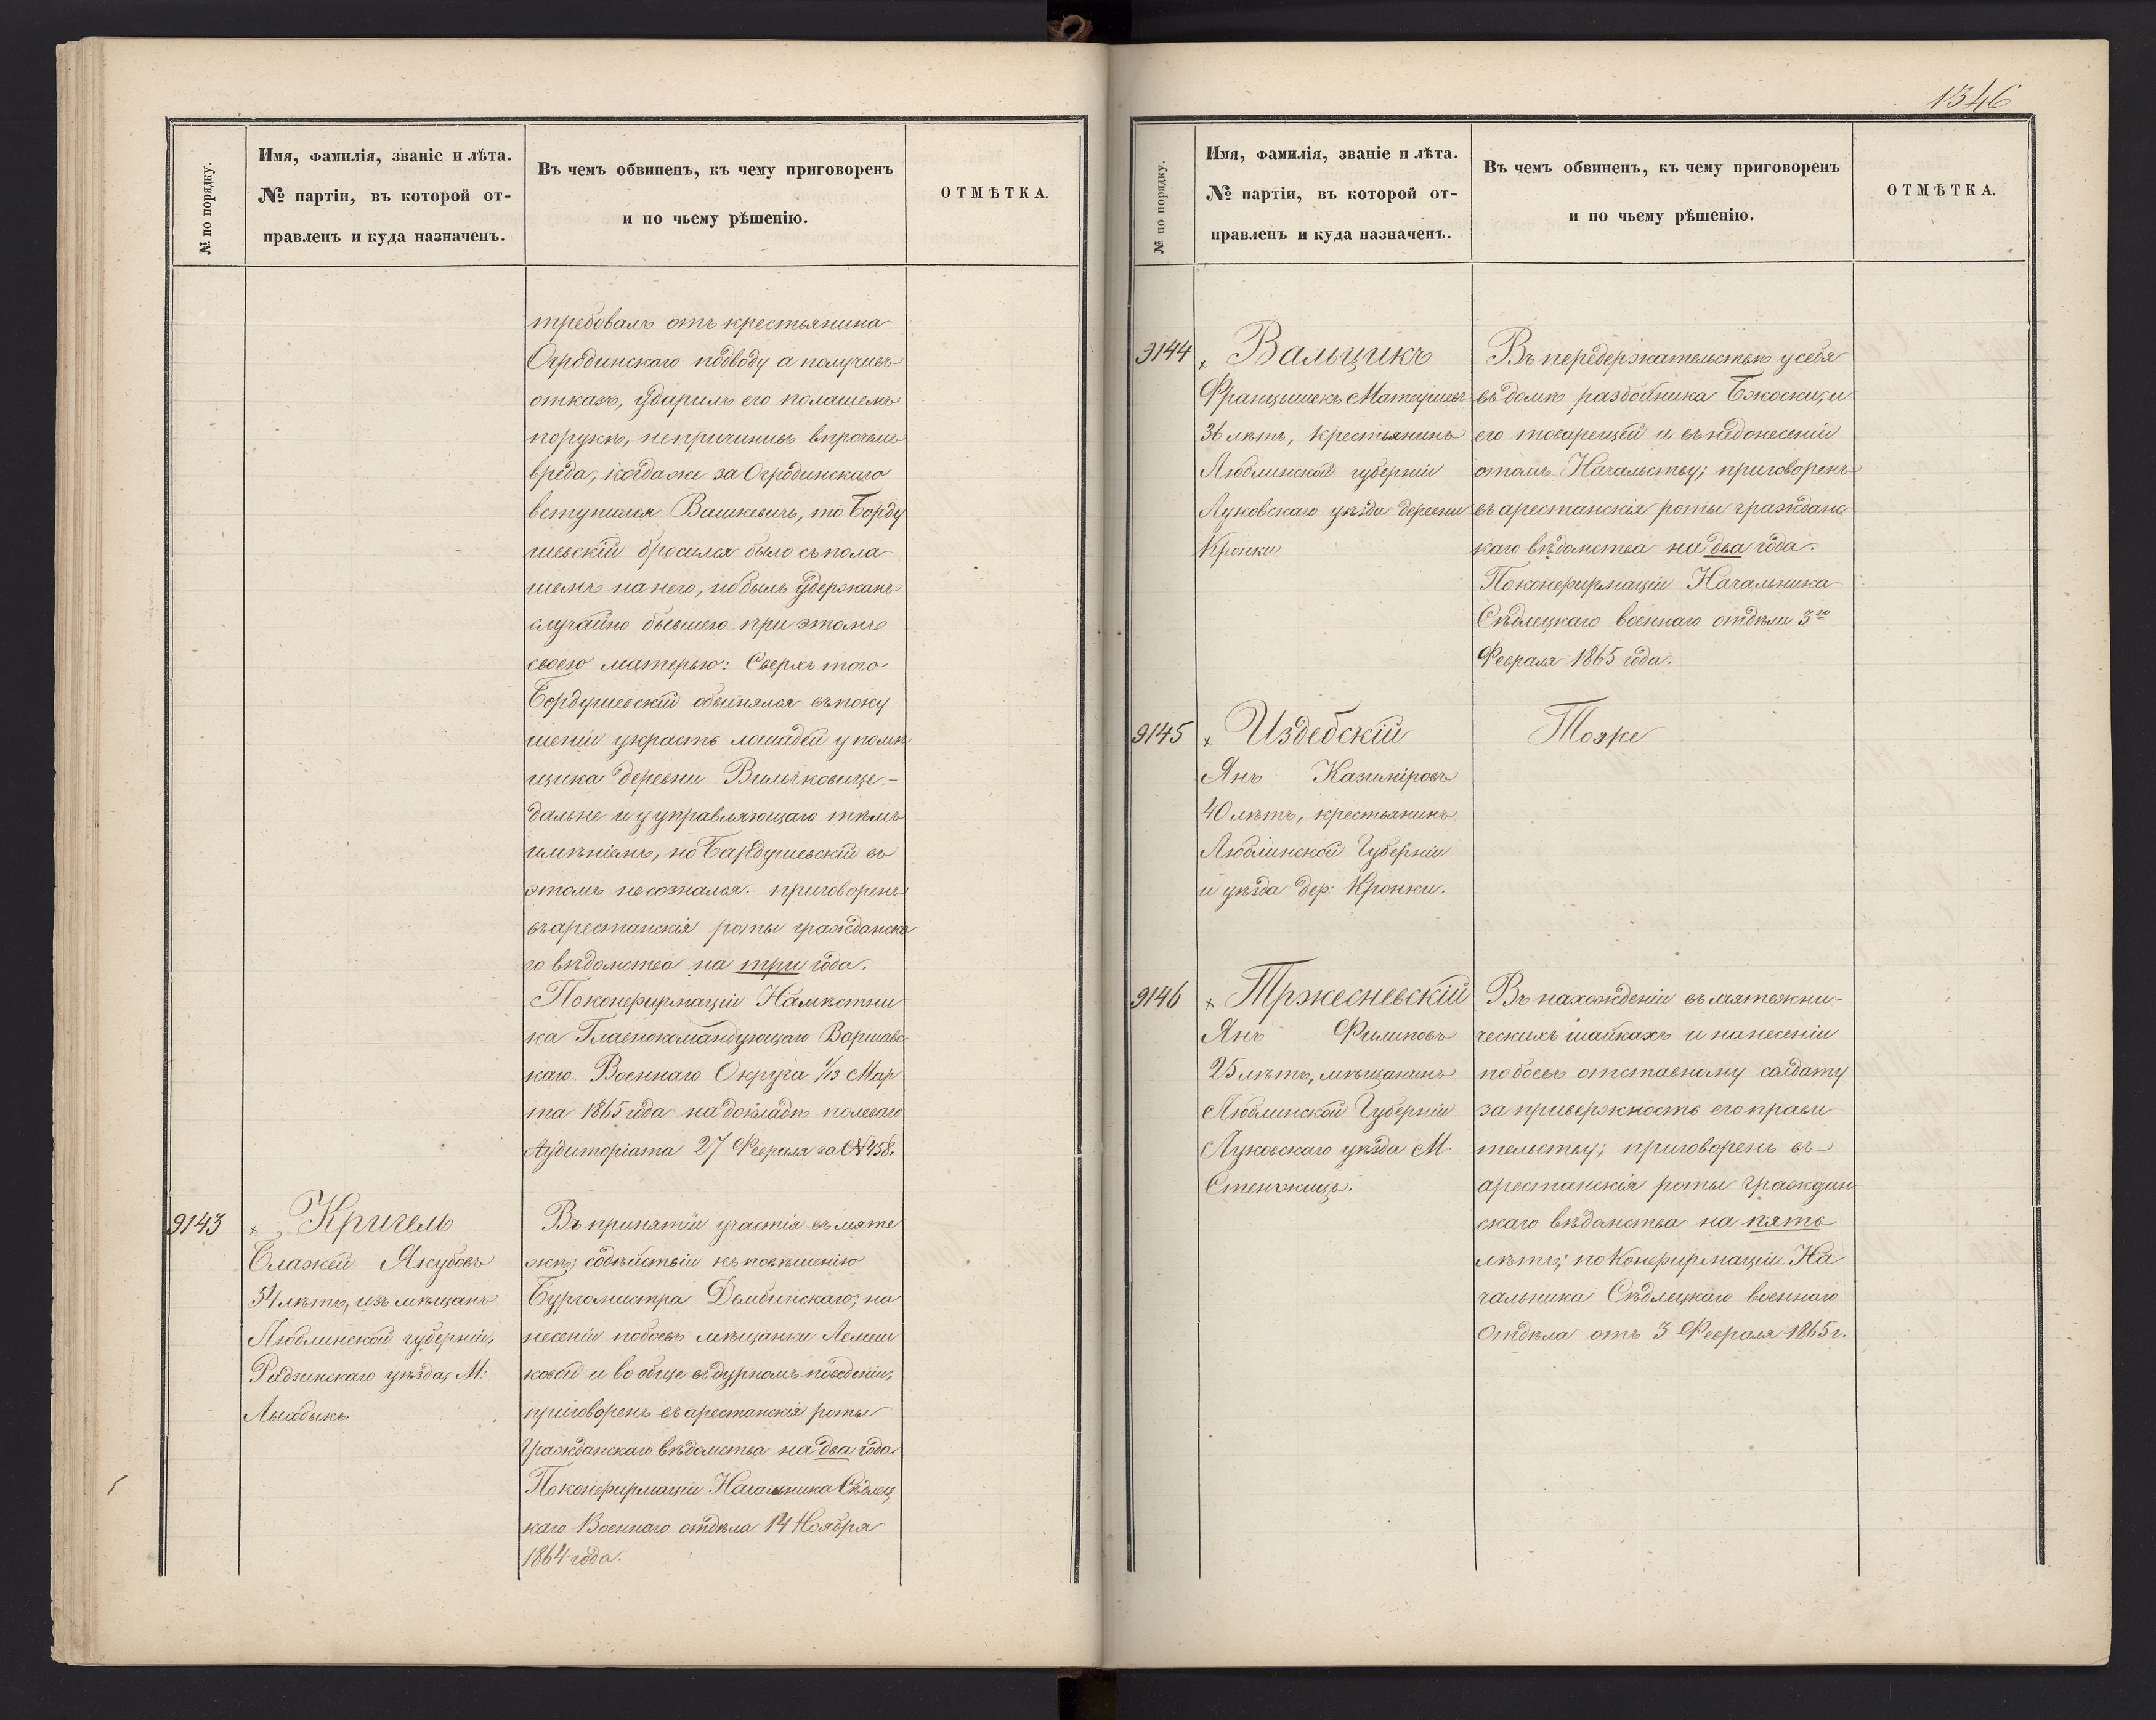 № по порядку.
Имя, фамилія, званіе и лѣта.
№ партіи, въ которой от-
правленъ и куда назначенъ.
Въ чемъ обвиненъ, къ чему приговоренъ
и по чьему рѣшенію.
ОТМѢТКА.
требовалъ отъ крестьянина
Огродинскаго подводу а получивъ
отказъ, ударилъ его палашемъ
по рукѣ, непричинивъ впрочемъ
вреда, когда же за Огродинскаго
вступился Вашкевичъ, то Борду
шевскій бросился было съ пола
шемъ на него, но былъ удержанъ
случайно бывшею при этомъ
своею матерью: Сверхъ того
Бордушевскій обвинялся въ поку
шеніи украсть лошадей у помѣ
щика деревни Вильчковице-
дальне и у управляющаго тѣмъ
имѣніемъ, но Бардушевскій въ
этомъ несознался. приговоренъ
въ арестанскія роты гражданска
го вѣдомства на три года.
По конфирмаціи Намѣстни
ка Главнокомандующаго Варшавс
каго Военнаго Округа 1/13 Мар
та 1865 года на докладѣ полеваго
Аудиторіата 27 Февраля за № 458.
9143
× Кригель
Блажей Якубовъ
54 лѣтъ, изъ мѣщанъ
Люблинской губерніи,
Радзинскаго уѣзда, М:
Лысобыкъ
Въ принятіи участія въ мяте
жѣ; содѣйствіи къ повѣшенію
Бургомистра Дембинскаго, на
несеніи побоевъ мѣщанки Лемеш
ковой и во обще въ дурномъ поведеніи,
приговоренъ въ арестанскія роты
Гражданскаго вѣдомства на два года
По конфирмаціи Начальника Сѣдлец
каго Военнаго отдѣла 14 Ноября
1864 года.
1346
№ по порядку.
Имя, фамилія, званіе и лѣта.
№ партіи, въ которой от-
правленъ и куда назначенъ.
Въ чемъ обвиненъ, къ чему приговоренъ
и по чьему рѣшенію.
ОТМѢТКА.
9144
× Вальчикъ
Францышекъ Матеушевъ
36 лѣтъ, крестьянинъ
Люблинской губерніи
Луковскаго уѣзда деревни
Кронки
Въ передержательствѣ у себя
въ домѣ разбойника Бжоски, и
его товарещей и въ недонесеніи
о томъ Начальству; приговоренъ
въ арестанскія роты гражданс
каго вѣдомства на два года.
По конфирмаціи Начальника
Сѣдлецкаго военнаго отдѣла 3го
Февраля 1865 года.
9145
× Издебскій
Янъ Казиміровъ
40 лѣтъ, крестьянинъ
Люблинской Губерніи
и уѣзда дер: Кронки.
Тоже
9146
× Тржесневскій
Янъ Филиповъ
25 лѣтъ, мѣщанинъ
Люблинской Губерніи
Луковскаго уѣзда М.
Стенжицъ.
Въ нахожденіи въ мятежни-
ческихъ шайкахъ и нанесеніи
побоевъ отставному солдату
за привержность его прави-
тельству; приговоренъ въ
арестанскія роты граждан
скаго вѣдомства на пять
лѣтъ; по Конфирмаціи На
чальника Сѣдлецкаго военнаго
Отдѣла отъ 3 Февраля 1865 г.